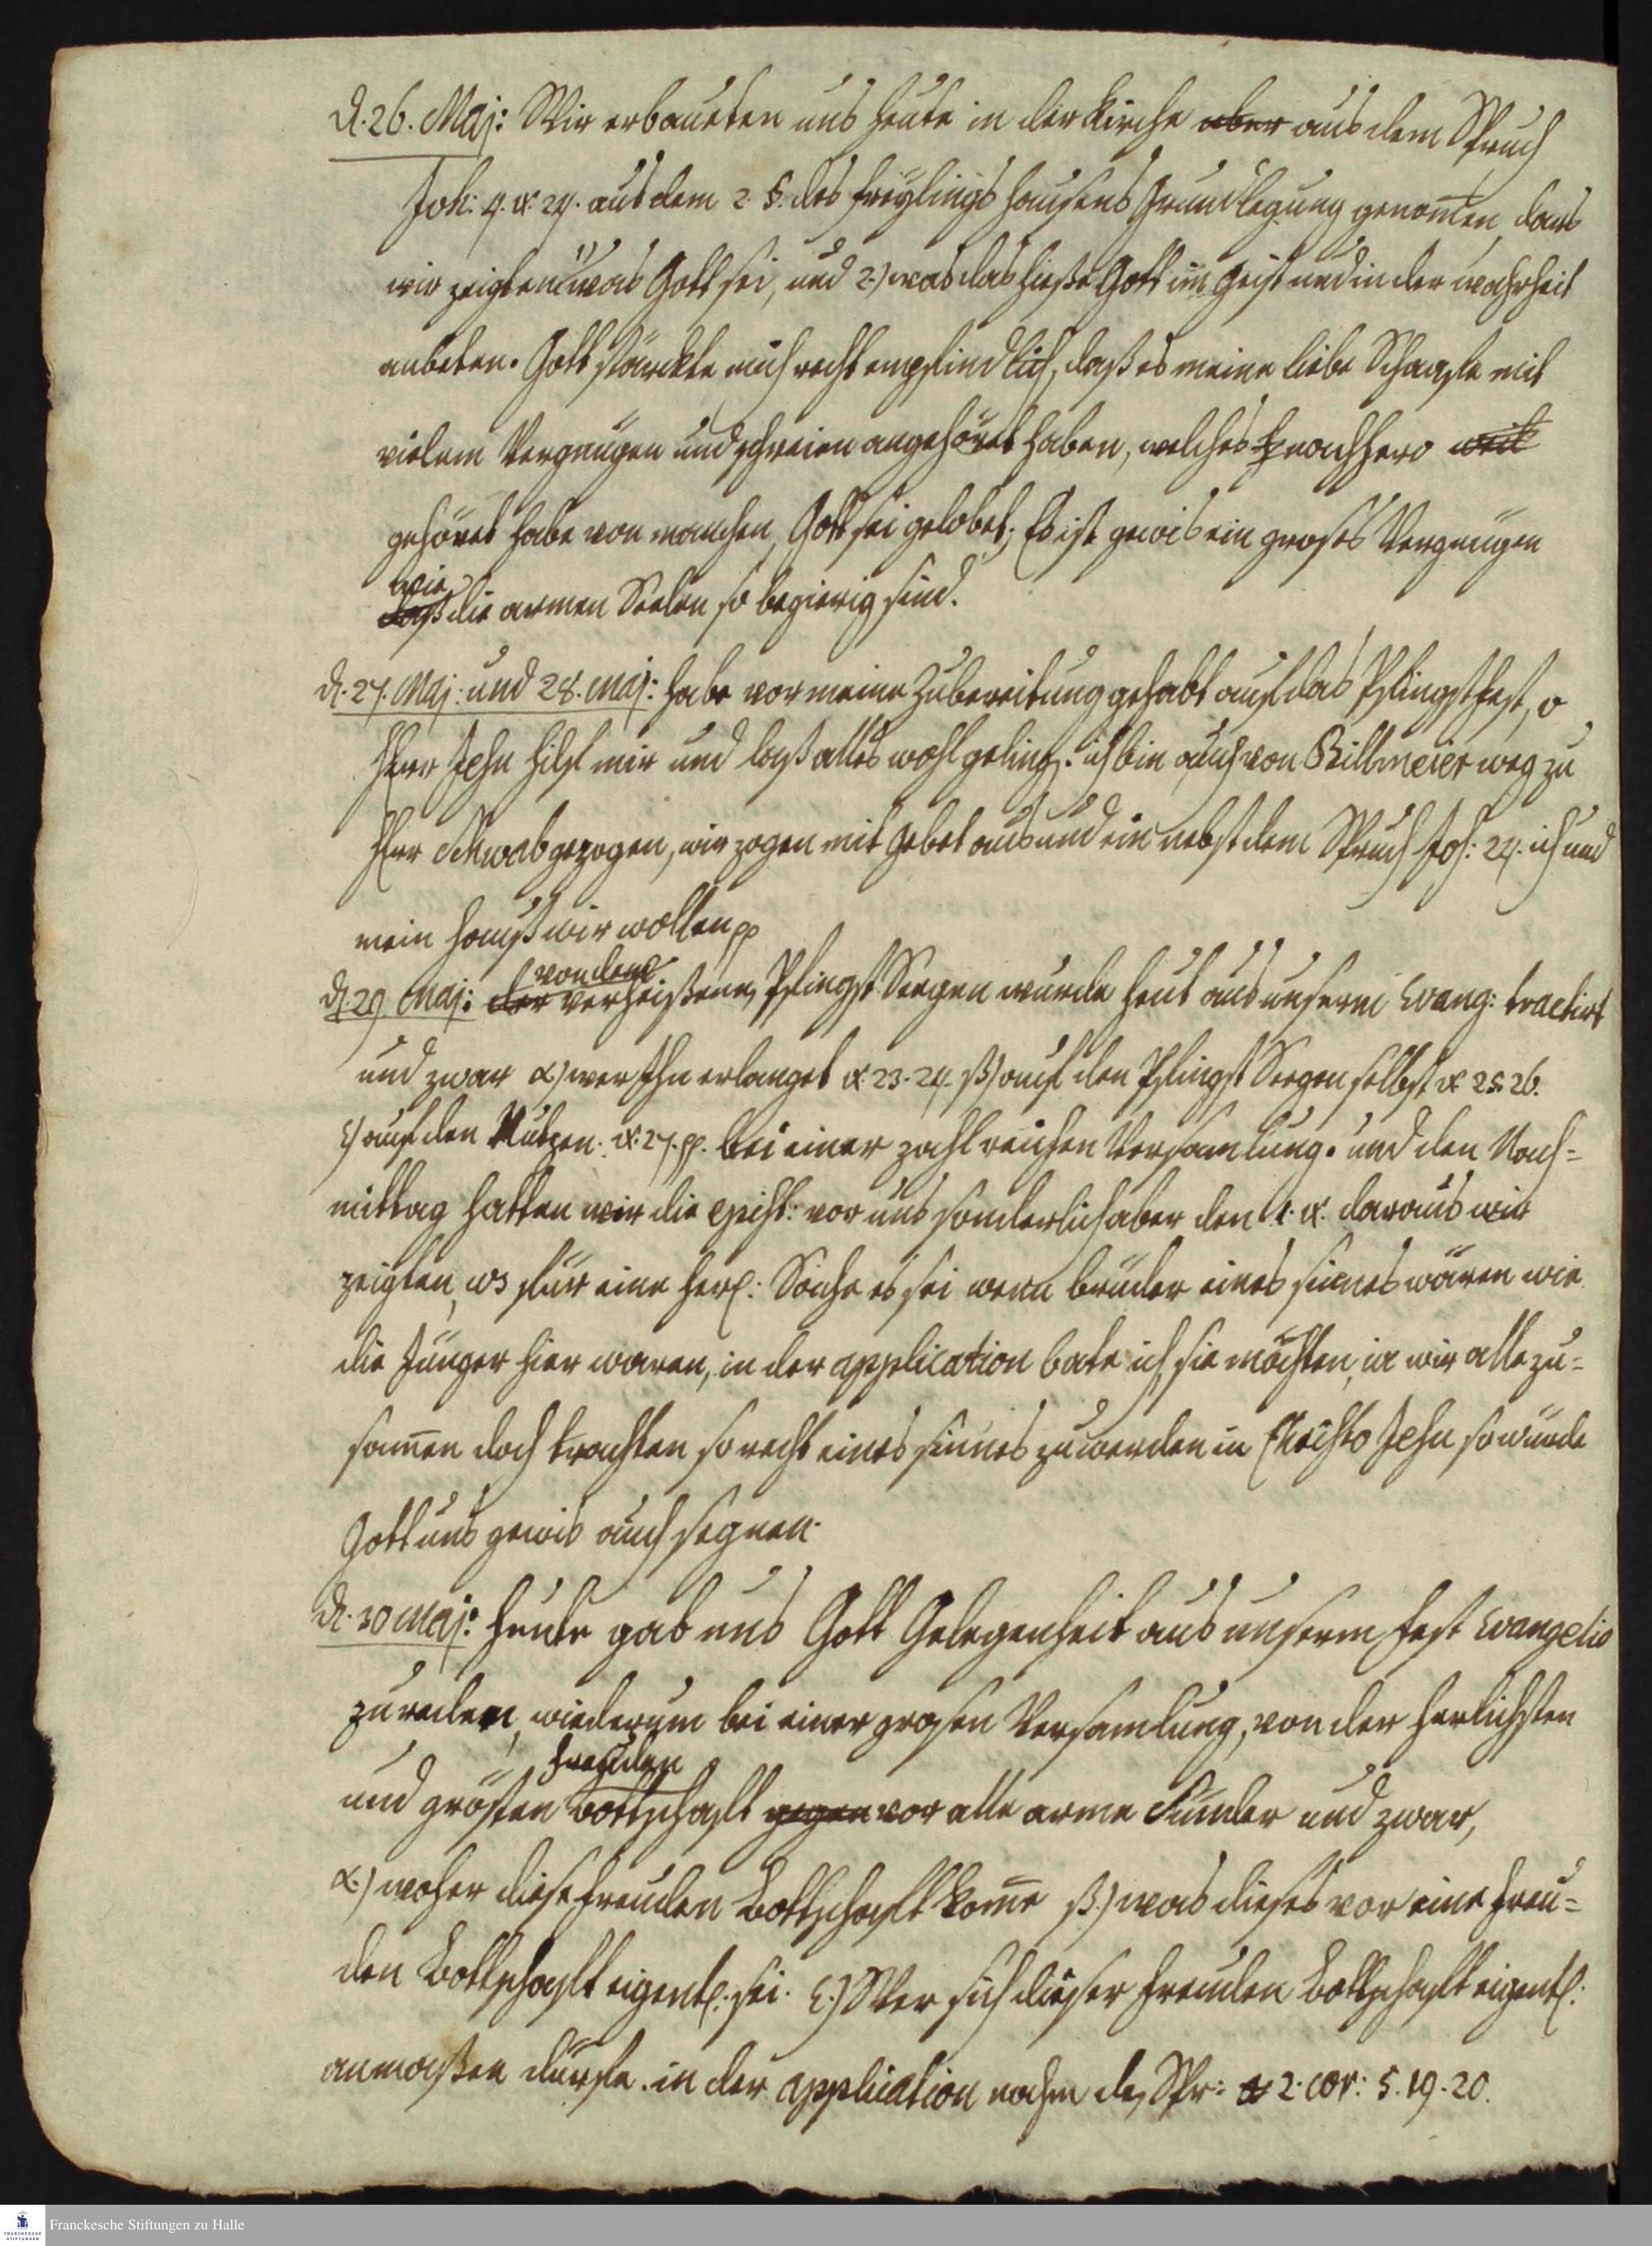 d. 26. Maj: Wir erbaueten uns heute in der Kirche aber aus dem Spruch
Joh: 4. v. 24. aus dem 2. §. des freÿlings hausens Grundlegung genom̅en, daraus
wir zeigten 1) was Gott sei, und 2.) was das hieße Gott im Geist und in der wahrheit
anbeten. Gott stärckte mich recht empfindlich, daß es meine liebe Schaafe mit
vielem Vergnügen und schreien angehöret haben, welches nachhero weit
gehöret habe von manchen, Gott sei gelobet; Es ist gewis ein groses Vergnügen
wie
daß die armen Seelen so begierig sind.
d. 27. Maj: und 28. maj: habe vor meine Zubereitung gehabt auf das Pfingstfest, o
Herr Jesu hilf mir und laß alles wohl geling. ich bin auch von Billmeier weg zu
Herr Schwab gezogen, wir zogen mit Gebet aus und ein nebst dem Spruch Jos: 24. ich und
mein hauß wir wollen pp
von dem
d. 29 Maj: der verheißenen Pfingst Seegen wurde heut aus unserm Evang: tractirt
und zwar α) wer Ihn erlanget v. 23. 24. β) auf den Pfingst Seegen selbst v 25. 26.
ε) auf den Nutzen. v. 27. pp. bei einer zahlreichen Versamlung. und den Nach=
mittag hatten wir die Epist: vor uns sonderlich aber den 1. v. daraus wir
zeigten, ws für eine herl: Sache es sei wenn brüder eines sinnes wären wie
die Jünger hier waren, in der application bate ich, sie möchten, ia wir alle zu=
sam̅en doch trachten so recht eines sinnes zu werden in Christo Jesu so würde
Gott uns gewis auch segnen.
d. 30 Maj: heute gab uns Gott Gelegenheit aus unserm Fest Evangelio
zu reden, wiederum bei einer grosen Versamlung, von der herlichsten
freuden
und grösten Bottschafft gegen vor alle arme Sünder und zwar,
α.) woher diese freuden Bottschafft kom̅e β.) was dieses vor eine freu=
den Bottschafft eigentl. sei. ε.) Wer sich dieser freuden Bottschafft eigentl:
anmaßen dürfte. in der application nahm den Spr: 2. Cor: 5. 19. 20.
Franckesche Stiftungen zu Halle
FRANCKESCHE STIFTUNGEN